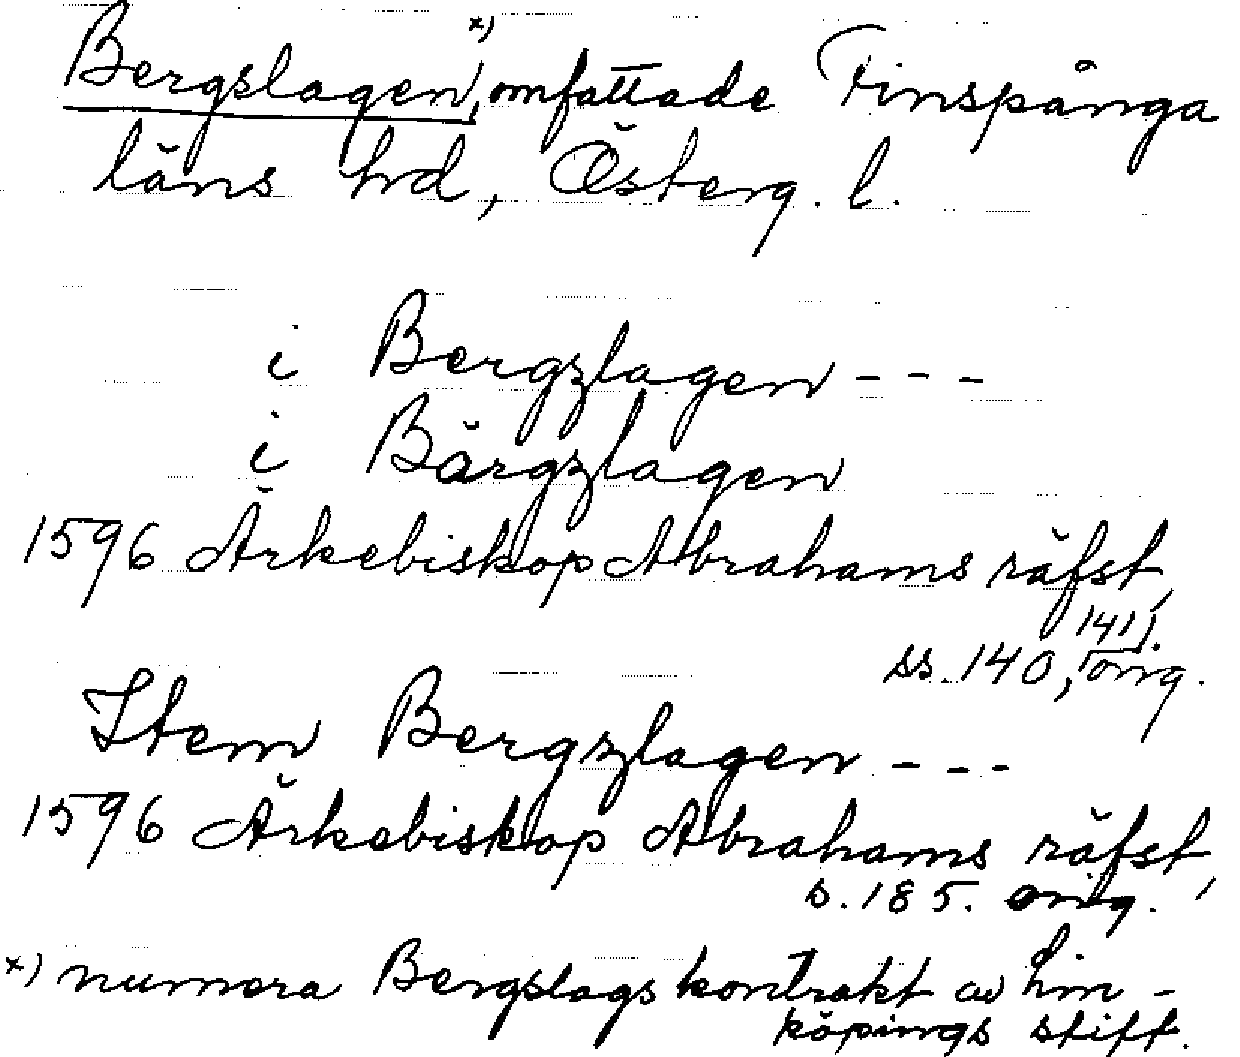 Bergslagen, x) omfattade Finspånga
läns hd, Österg. l.
i Bergzlagen - - -
i Bärgzlagen
1596 Ärkebiskop Abrahams räfst,
ss. 140, 141). orig.
Item Bergzlagen - - -
1596 Ärkebiskop Abrahams räfst,
s. 185. orig.
x) numera Bergslags kontrakt av Lin-
köpings stift.